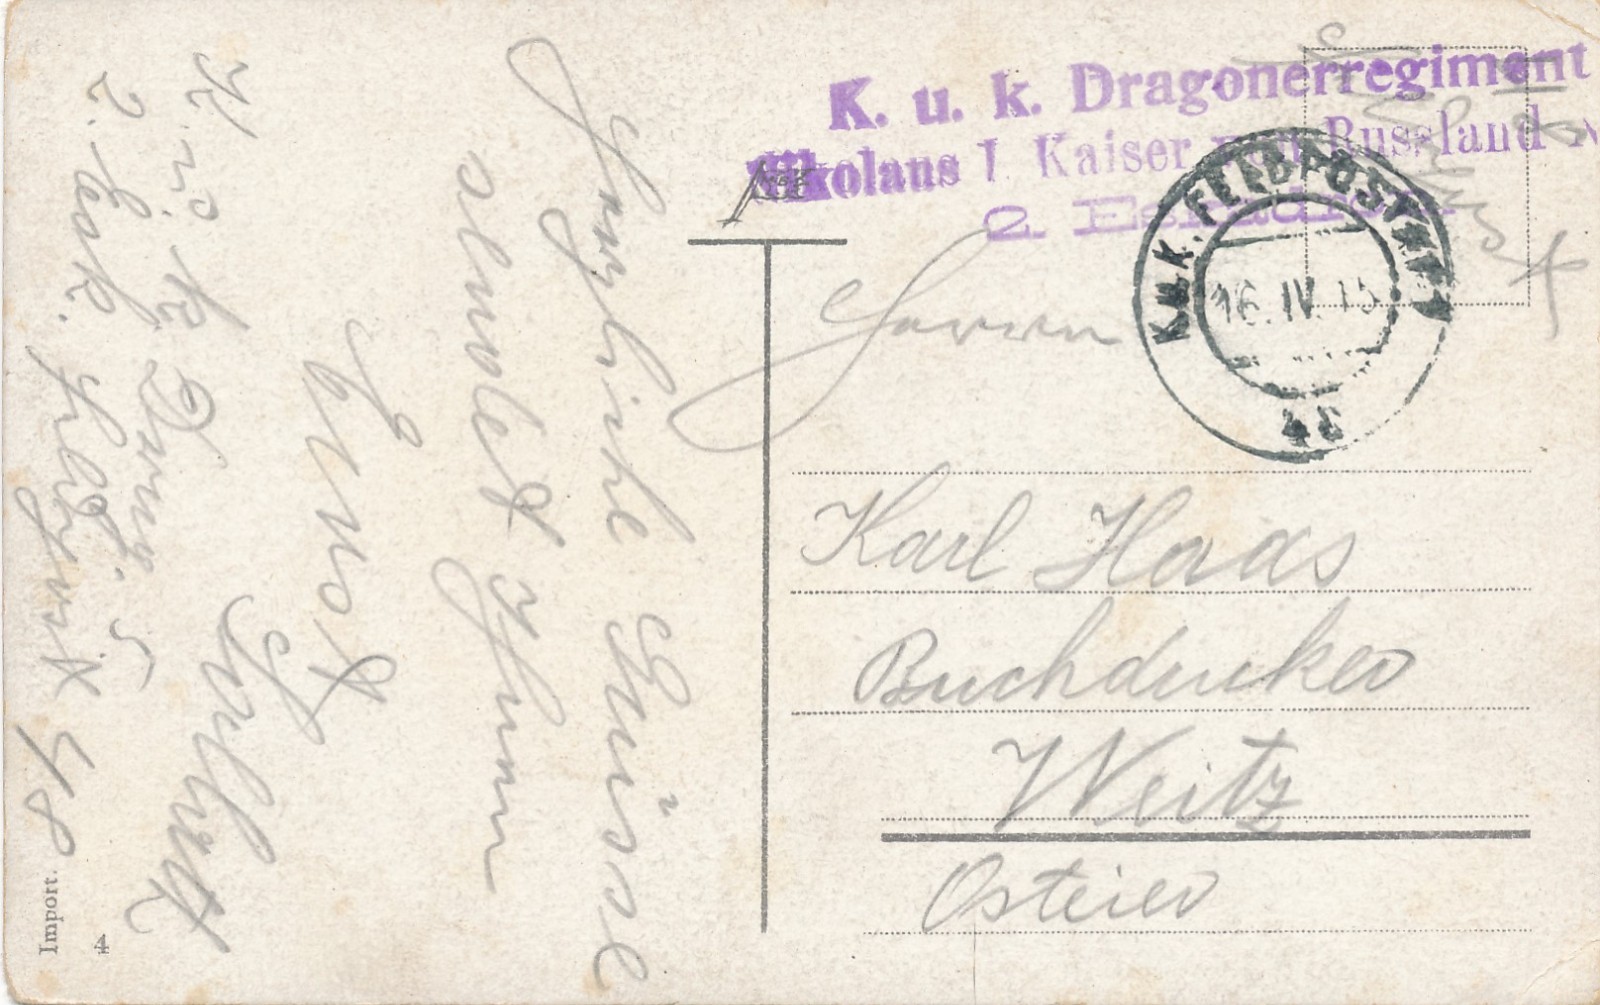 K. u. k. Dragonerregiment
Nikolaus I Kaiser von Russland N
2. Eskadron
K.u.K. FELDPOSTAMT
16. IV. 15
48
Herrn
Karl Haas
Buchdrucker
Weitz
Osteier
Herzliche Grüsse
sendet Ihnen
Ernst
K. u. k. Drag. 5
2. Esk. Feldpost 48
Import.
4